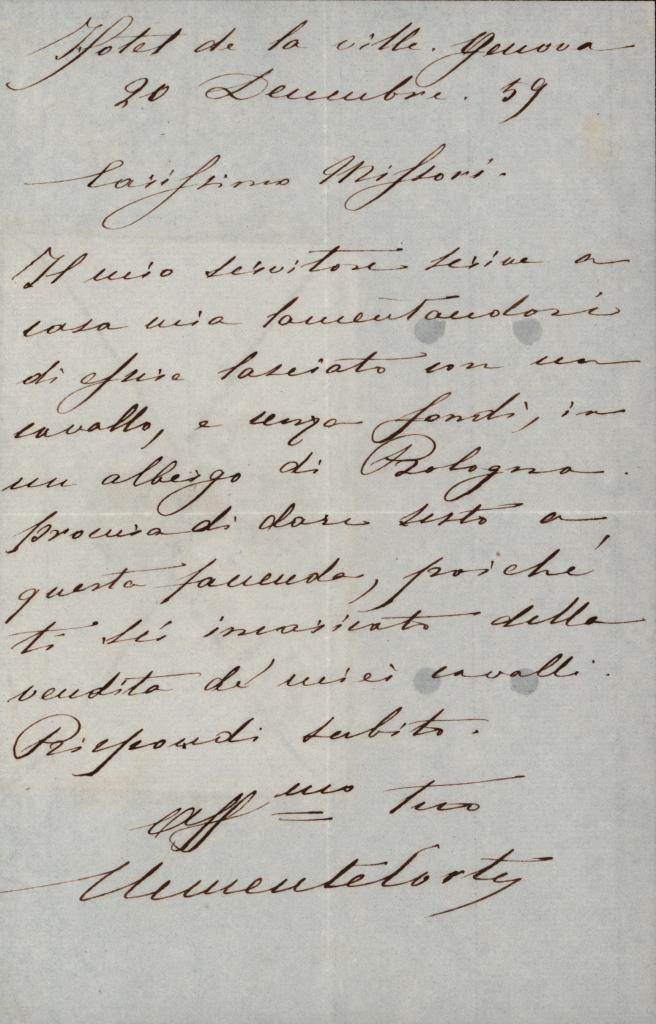 Hotel de la ville. Genova
20 Decembre. 59
Carissimo Missori.
Il mio servitore scrive a
casa mia lamentandosi
di essere lasciato con un
cavallo, e senza fondi, in
un albergo di Bologna.
procura di dare sesto a
questa faccenda, poiché
ti sei incaricato della
vendita de' miei cavalli.
Rispondi subito.
Aff mo tuo
Clemente Corte